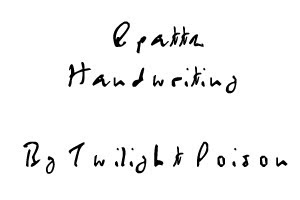 Handwriting
By Twilight Poison